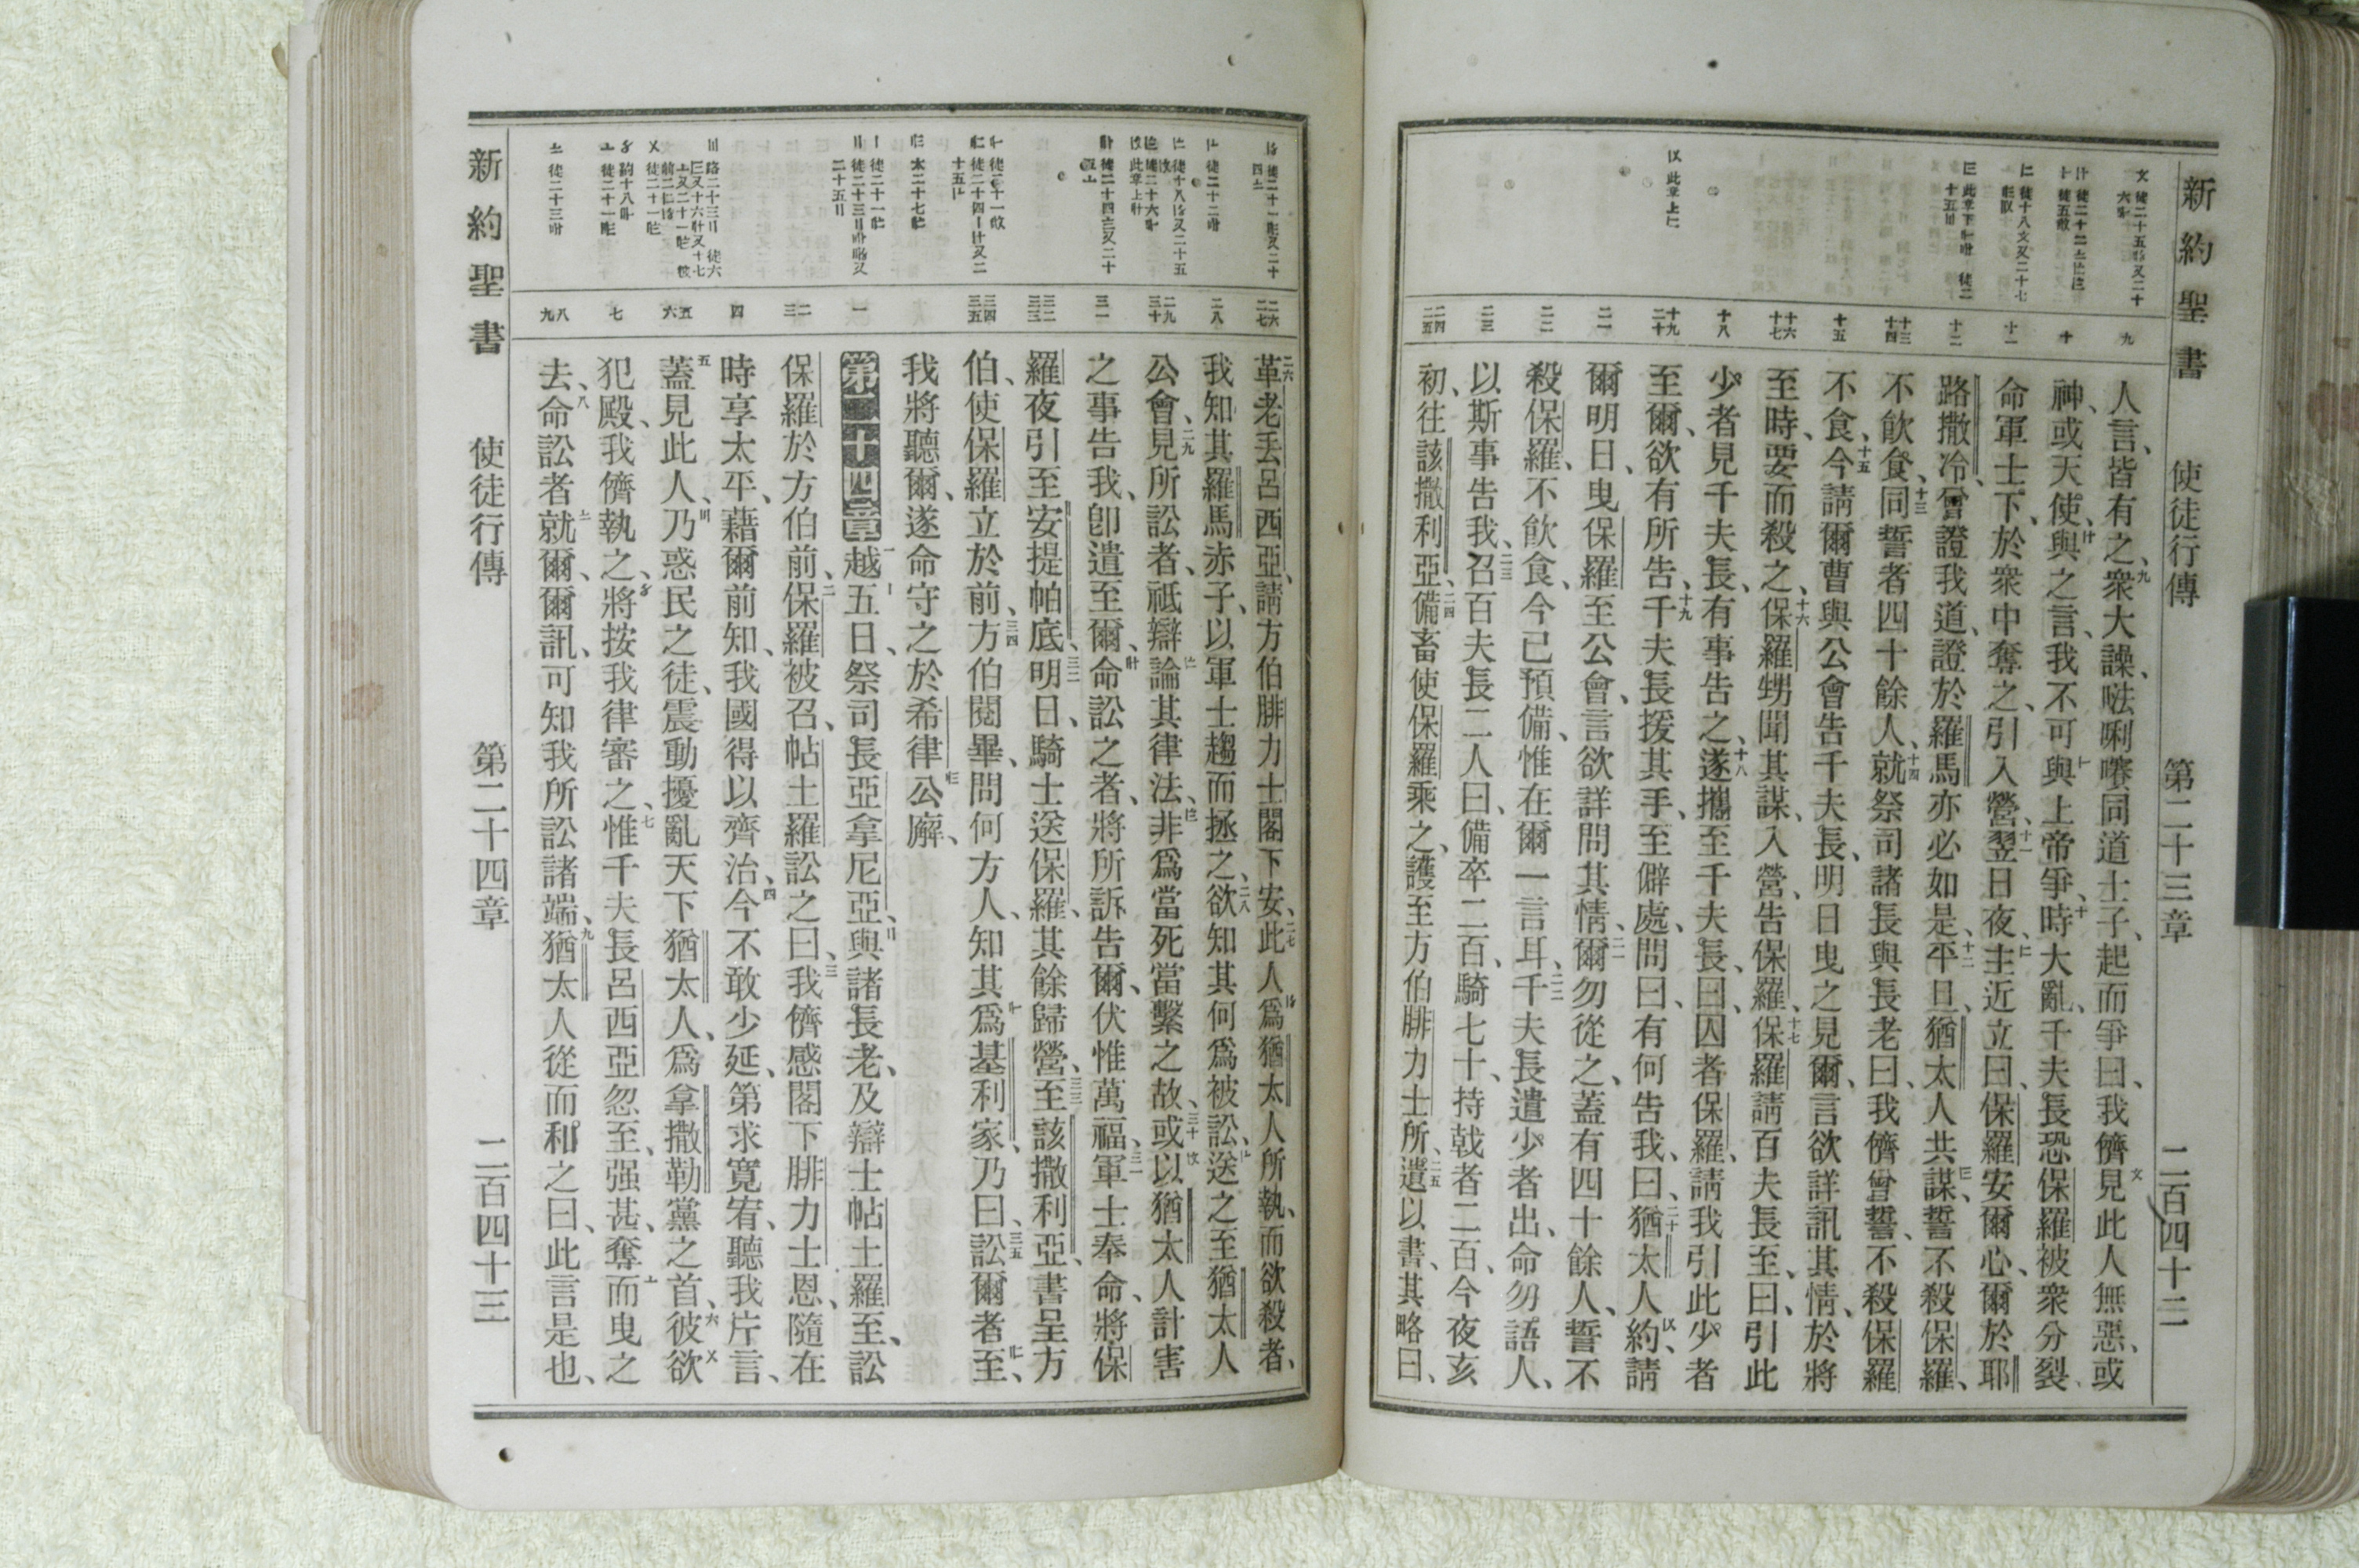 新約聖書 使徒行傳 第二十三章 二百四十二
九
十
十一
十二
十三 十四
十五
十六 十七
十八
十九 二十
二一
二二
二三
二四 二五
人言、皆有之、九衆大譟、𠵽唎嚽同道士子、起而爭曰、我儕見此人無惡、或
神、或天使、與之言、我不可與上帝爭、十時大亂、千夫長恐保羅被衆分裂
命軍士下、於衆中奪之、引入營、十一翌日夜、主近立曰、保羅安爾心、爾於耶
路撒冷、曾證我道、證於羅馬亦必如是、十二平旦、猶太人共謀、誓不殺保羅、
不飲食、十三同誓者四十餘人、十四就祭司諸長與長老曰、我儕曾誓、不殺保羅
不食、十五今請爾曹與公會告千夫長、明日曳之見爾、言欲詳訊其情、於將
至時、要而殺之、十六保羅甥聞其謀、入營、告保羅、十七保羅請百夫長至、曰、引此
少者見千夫長、有事告之、十八遂攜至千夫長、曰、囚者保羅、請我引此少者
至爾、欲有所告、十九千夫長援其手、至僻處、問曰、有何告我、二十曰、猶太人約、請
爾明日、曳保羅至公會、言欲詳問其情、二一爾勿從之、蓋有四十餘人、誓不
殺保羅、不飲食、今已預備、惟在爾一言耳、二二千夫長遣少者出、命勿語人、
以斯事告我、二三召百夫長二人曰、備卒二百、騎七十、持戟者二百、今夜亥
初、往該撒利亞、二四備畜使保羅乘之、護至方伯腓力士所、二五遺以書、其略曰、
二六 二七
二八
二九 三十
三一
三二 三三
三四 三五
一
二 三
四
五 六
七
八 九
二六革老丟呂西亞、請方伯腓力士閣下安、二七此人爲猶太人所執、而欲殺者、
我知其羅馬赤子、以軍士趨而拯之、二八欲知其何爲被訟、送之至猶太人
公會、二九見所訟者、祗辯論其律法、非爲當死當繫之故、三十或以猶太人計害
之事告我、卽遣至爾、命訟之者、將所訴告爾、伏惟萬福、三一軍士奉命、將保
羅夜引至安提帕底、三二明日、騎士送保羅、其餘歸營、三三至該撒利亞、書呈方
伯、使保羅立於前、三四方伯閱畢、問何方人、知其爲基利家、乃曰、三五訟爾者至、
我將聽爾、遂命守之於希律公廨、
第二十四章 一越五日、祭司長亞拿尼亞、與諸長老、及辯士帖土羅至、訟
保羅於方伯前、二保羅被召、帖土羅訟之曰、三我儕感閣下腓力士恩、隨在
時享太平、藉爾前知、我國得以齊治、四今不敢少延、第求寬宥、聽我片言、
五蓋見此人、乃惑民之徒、震動擾亂天下猶太人、爲拿撒勒黨之首、六彼欲
犯殿、我儕執之、將按我律審之、七惟千夫長呂西亞忽至、强甚、奪而曳之
去、八命訟者就爾、爾訊、可知我所訟諸端、九猶太人從而和之曰、此言是也、
新約聖書 使徒行傳 第二十四章 二百四十三